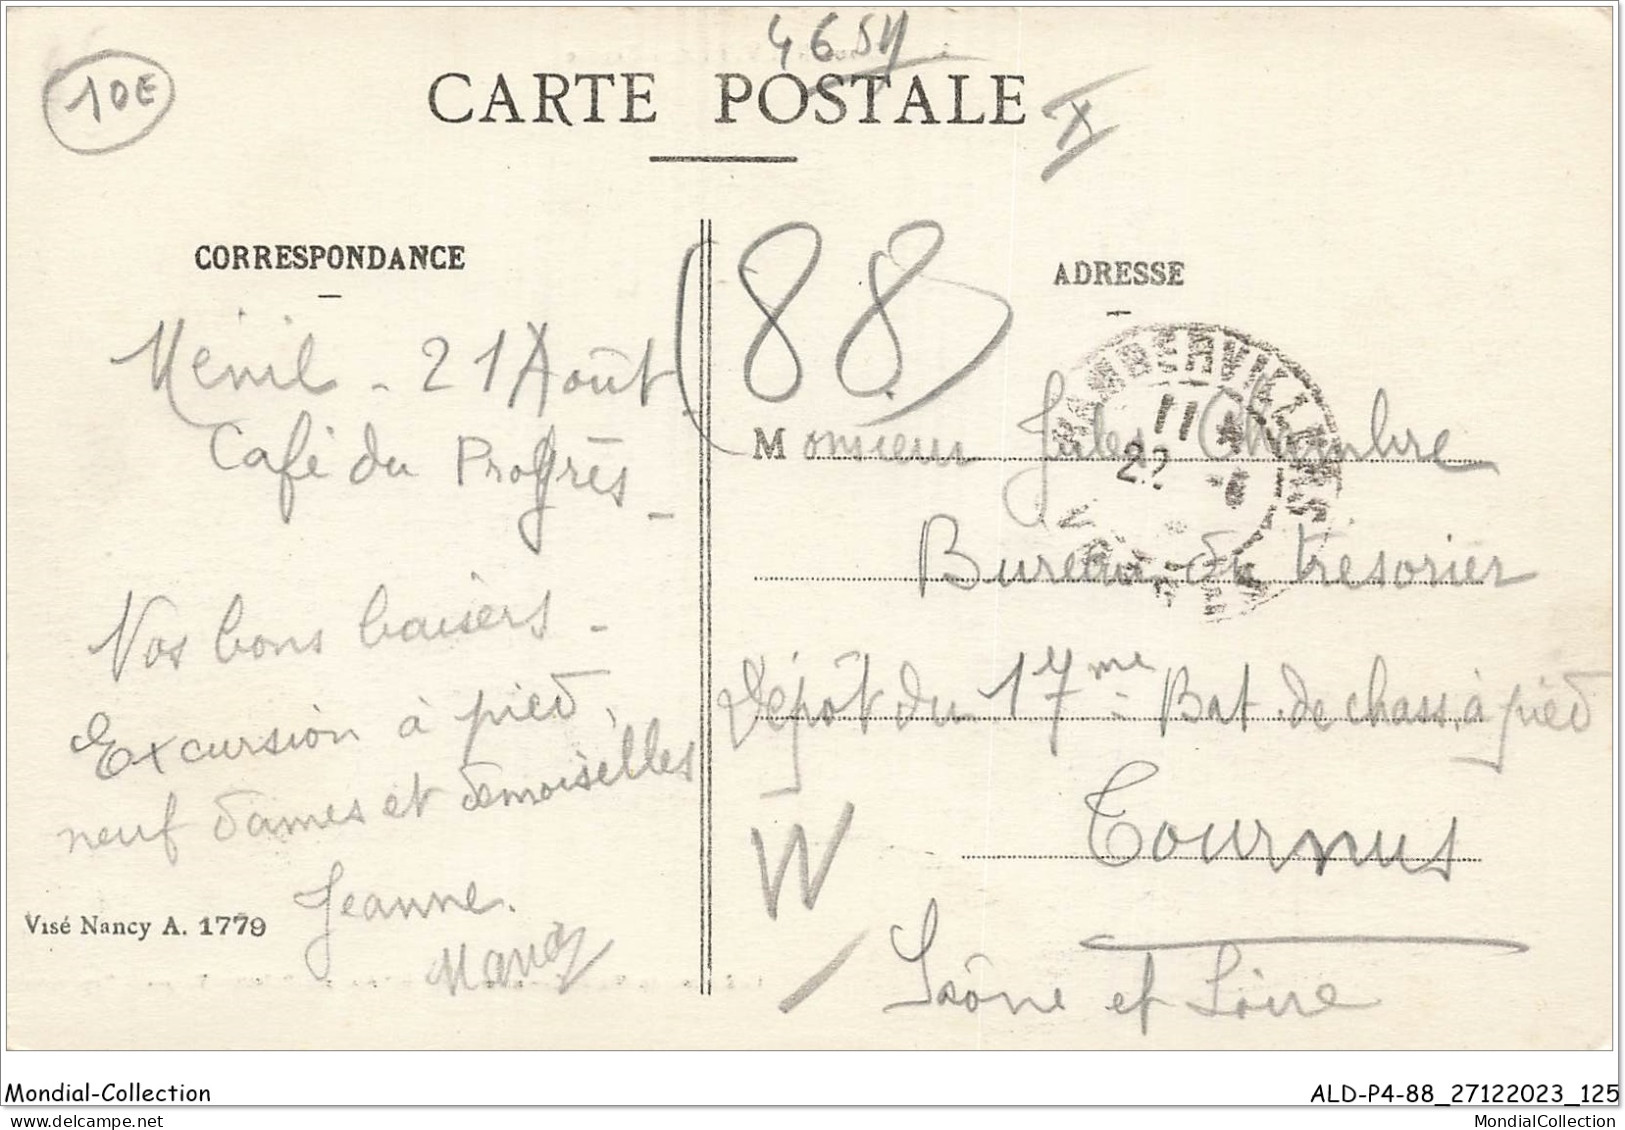 10E
CARTE POSTALE
CORRESPONDANCE
Ménil - 21 Août
Café du Progrès -
Nos bons baisers -
Excursion à pied,
neuf dames et demoiselles
Jeanne.
Visé Nancy A. 1779
(88)
ADRESSE
RAMBERVILLERS
11
22 -8
VOSGES
Monsieur Jules Chambre
Bureau du trésorier
Dépôt du 17me Bat. de chass. à pied
Tournus
Saône et Loire
W
Mondial-Collection
ALD-P4-88_27122023_125
MondialCollection
MondialCollection